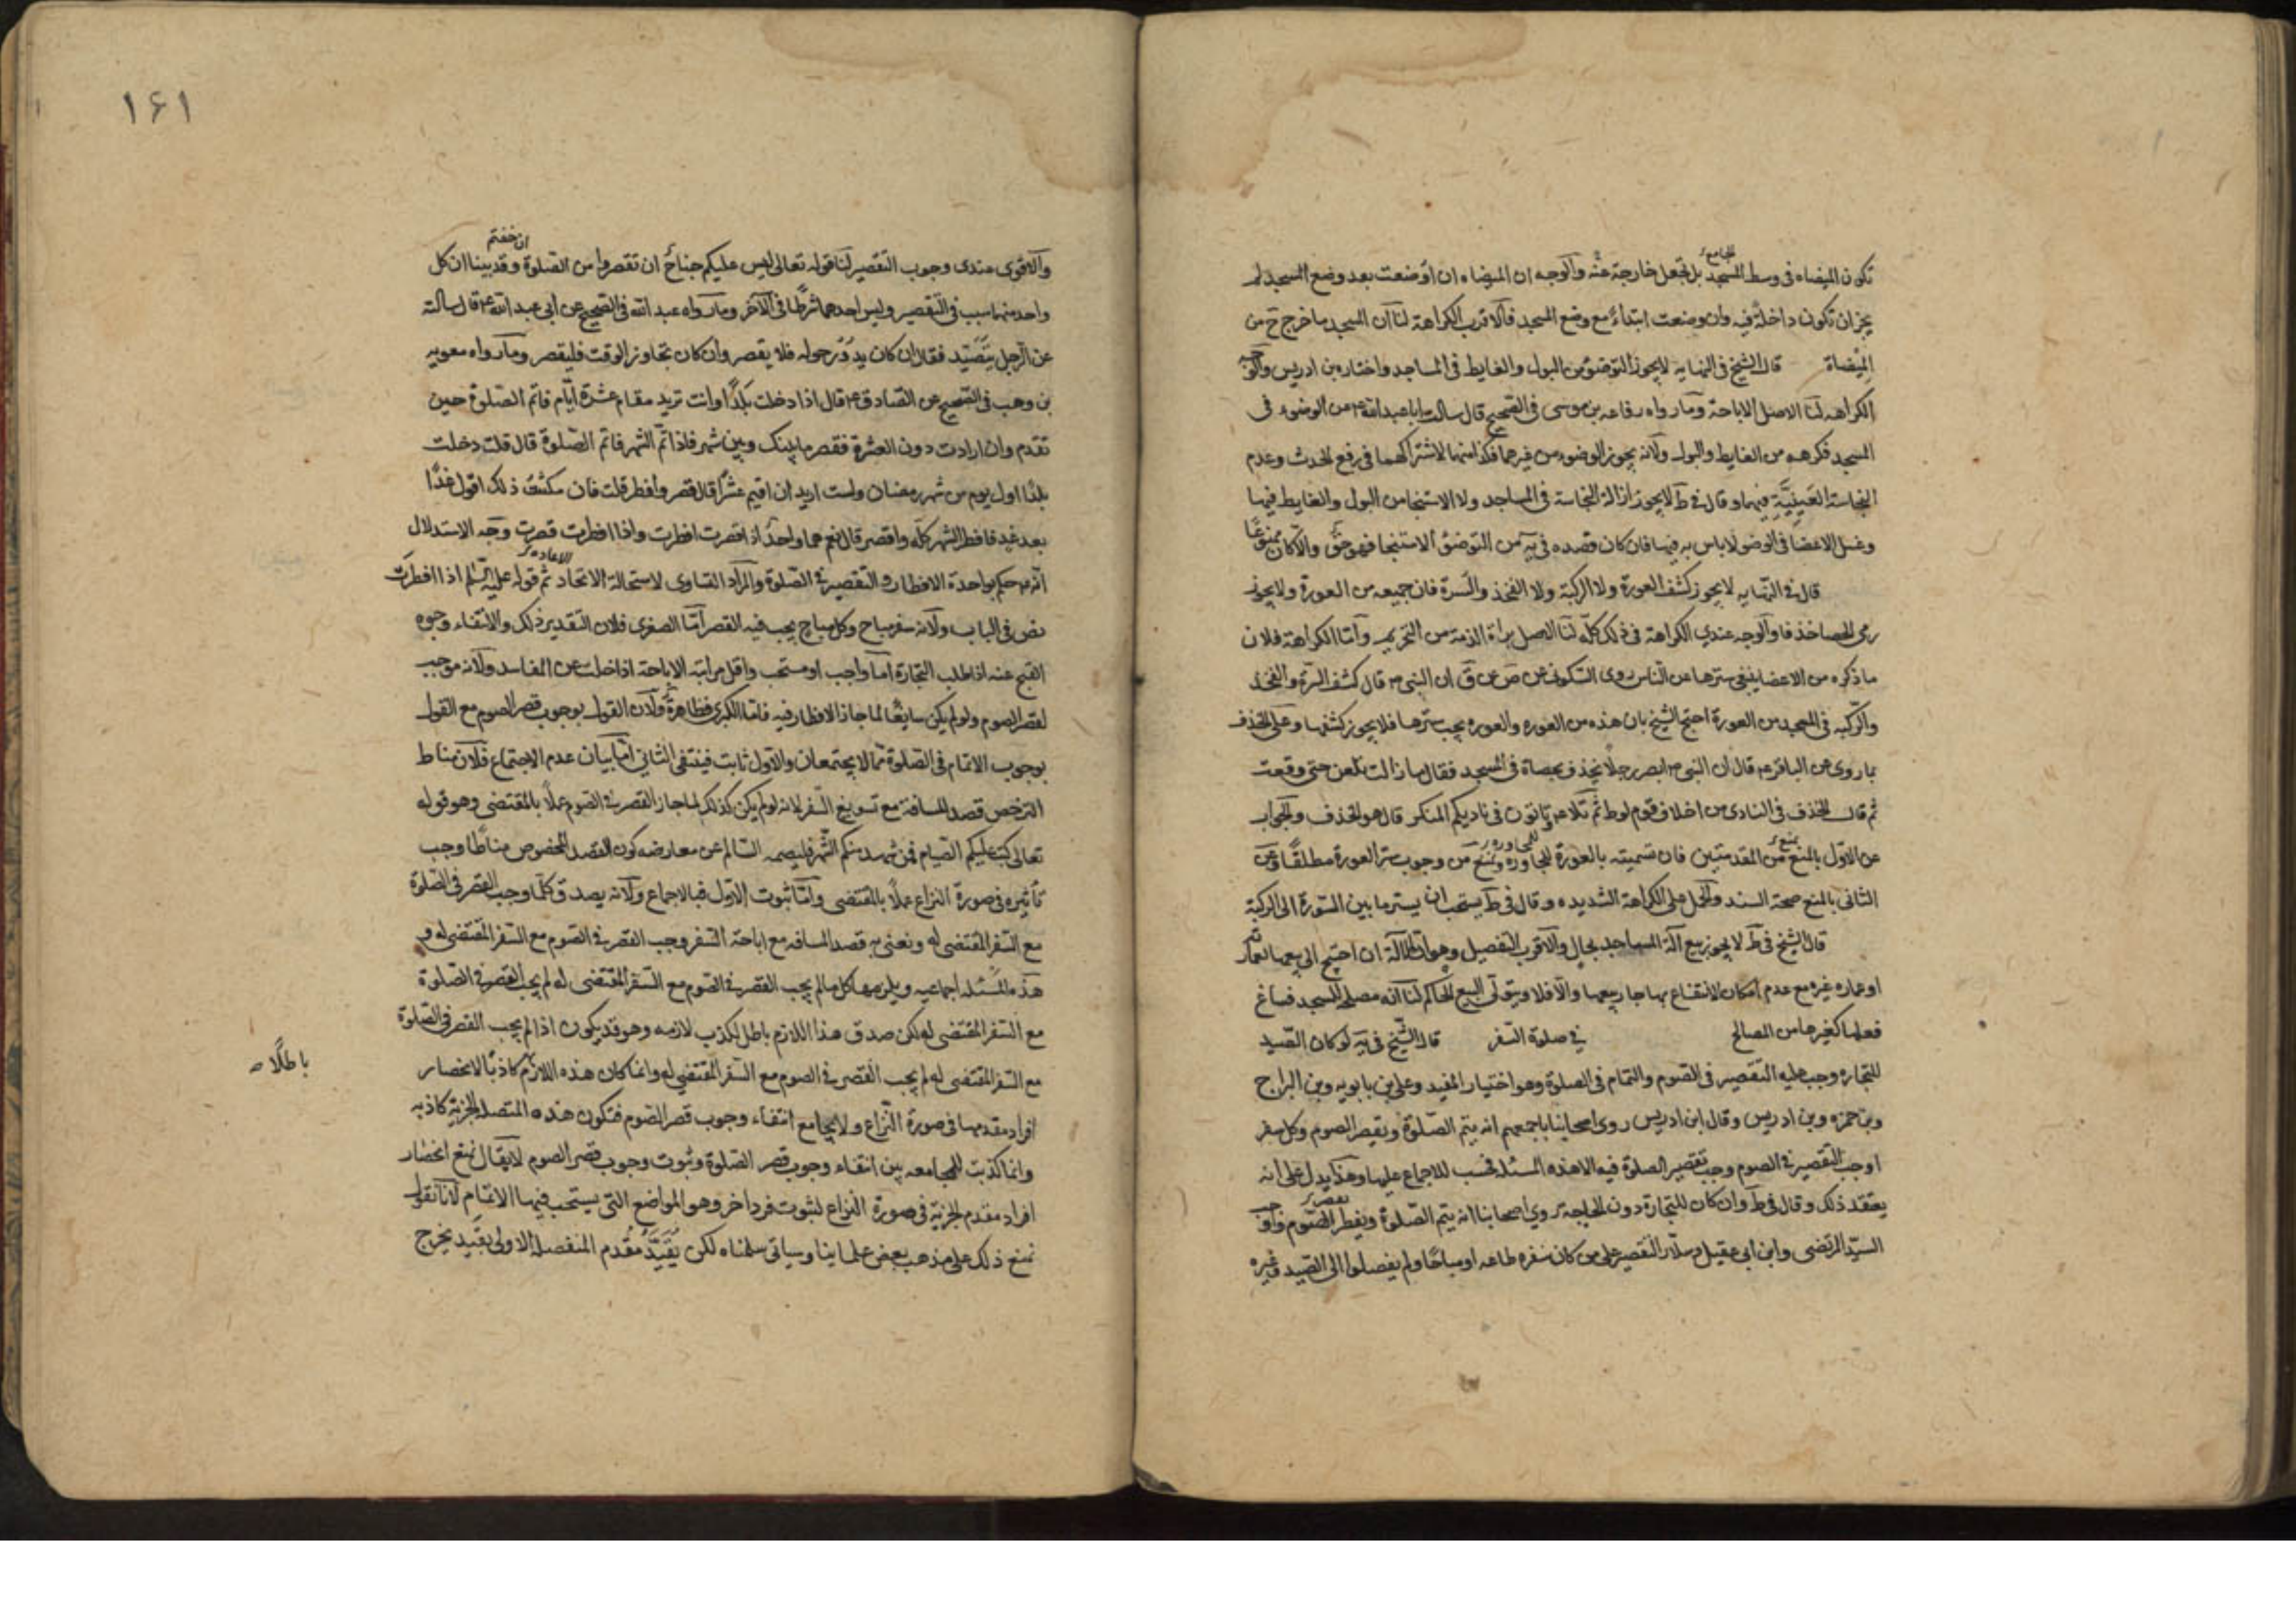 تكون الميضاه فى وسط المسجد الجامع بل تجعل خارجة عنه والوجه ان الميضاه ان وضعت بعد وضع المسجد لم
يجز ان تكون داخلة فيه وان وضعت ابتداء مع وضع المسجد فالاقرب الكراهة لنا ان المسجد ما خرج ح من
الميضاة قال الشيخ فى النهايه لايجوز التوضؤ من البول والغايط فى المساجد واختاره بن ادريس والوجه
الكراهه لنا الاصل الاباحة وما رواه رفاعه بن موسى فى الصحيح قال سالت ابا عبد الله ع عن الوضوء فى
المسجد فكرهه من الغايط والبول ولانه يجوز الوضوء من غيرهما فكذا منهما لاشتراكهما فى رفع الحدث وعدم
النجاسة العينية فيهما وقال فى ط لايجوز ازالة النجاسة فى المساجد ولا الاستنجا من البول والغايط فيها
وغسل الاعضا فى الوضو لاباس به فيها فان كان قصده فى يه من التوضئ الاستنجا فهو حق والا كان ممنوعا
قال فى النهايه لايجوز كشف العورة ولا الركبة ولا الفخذ والسرة فان جميعه من العورة ولايجوز
رمى الحصا خذفا والوجه عندي الكراهة فى ذلك كله لنا الاصل براة الذمة من التحريم واما الكراهة فلان
ما ذكره من الاعضا ينبغى سترها عن الناس روى السكونى عن ص عن ق ان النبى ص قال كشف السرة والفخذ
والركبه فى المسجد من العورة احتج الشيخ بان هذه من العوره والعوره يجب سترها فلا يجوز كشفها وعلى الخذف
بما روى عن الباقر ع قال ان النبى ص ابصر رجلا يخذف بحصاة فى المسجد فقال ما زالت تلعن حتى وقعت
ثم قال الخذف فى النادى من اخلاق قوم لوط ثم تلا ع وتاتون فى ناديكم المنكر قال هو الخذف والجواب
عن الاول بالمنع من المقدمتين فان تسميته بالعورة للمجاوره ونمنع من وجوب ستر العورة مطلقا وعن
الثانى بالمنع صحة السند والحمل على الكراهة الشديده وقال فى ط يستحب ان يستر ما بين السرة الى الركبة
قال الشيخ فى ط لا يجوز بيع آلة المساجد بحال والاقرب التفصيل وهو ان الآلة ان احتيج الى بيعها لعمارته
او عماره غيره مع عدم امكان الانتفاع بها جاز بيعها والا فلا ويتولى البيع الحاكم لنا انه مصلحة للمسجد فساغ
فعلها كغيرها من المصالح فى صلوة السفر قال الشيخ فى يه لو كان الصيد
للتجاره وجب عليه التقصير فى الصوم والتمام فى الصلوة وهو اختيار المفيد وعلى بن بابويه وبن البراج
وبن حمزه وبن ادريس وقال ابن ادريس روى اصحابنا باجمعهم انه يتم الصلوة ويقصر الصوم وكل سفر
اوجب التقصير فى الصوم وجب تقصير الصلوة فيه الا هذه المسئلة فحسب للاجماع عليها وهذا يدل على انه
يعتقد ذلك وقال فى ط وان كان للتجارة دون الحاجة روى اصحابنا انه يتم الصلوة ويفطر الصوم واوجب
السيد المرتضى وابن ابى عقيل وسلار التقصير على من كان سفره طاعه او مباحا ولم يفصلوا الى الصيد وغيره
١٦١
والاقوى عندى وجوب التقصير لنا قوله تعالى ليس عليكم جناح ان تقصروا من الصلوة ان خفتم وقد بينا ان كل
واحد منهما سبب فى التقصير وليس احدهما شرطا فى الآخر وما رواه عبد الله فى الصحيح عن ابى عبد الله ع قال سالته
عن الرجل يتصيد فقال ان كان يدور حوله فلا يقصر وان كان تجاوز الوقت فليقصر وما رواه معويه
بن وهب فى الصحيح عن الصادق ع قال اذا دخلت بلدا وانت تريد مقام عشرة ايام فاتم الصلوة حين
تقدم وان اردت دون العشرة فقصر ما بينك وبين شهر فاذا تم الشهر فاتم الصلوة قال قلت دخلت
بلدا اول يوم من شهر رمضان ولست اريد ان اقيم عشرا قال قصر وافطر قلت فان مكثت ذلك اقول غدا
بعد غد فافطر الشهر كله واقصر قال نعم هما واحد اذا قصرت افطرت واذا افطرت قصرت وجه الاستدلال
انه ع حكم بواحدة الافطار والتقصير فى الصلوة والمراد التساوى لاستحالة الاتحاد ثم قوله عليه السلم اذا افطرت
نص فى الباب ولانه سفر مباح وكل مباح يجب فيه القصر اما الصغرى فلان التقدير ذلك والانتفاء وجوه
القبح عنه اذ طلب التجارة اما واجب او مستحب واقل مراتبه الاباحة اذا خلت عن المفاسد ولانه موجب
لقصر الصوم ولو لم يكن سايغا لما جاز الافطار فيه فاما الكبرى فظاهرة ولان القول بوجوب قصر الصوم مع القول
بوجوب الاتمام فى الصلوة مما لا يجتمعان والاول ثابت فينتفى الثانى اما بيان عدم الاجتماع فلان مناط
الترخص قصد المسافة مع تسويغ السفر لانه لو لم يكن كذلك لما جاز القصر فى الصوم عملا بالمقتضى وهو قوله
تعالى كتب عليكم الصيام فمن شهد منكم الشهر فليصمه السالم عن معارضه كون القصد المخصوص مناطا وجب
تأثيره فى صورة النزاع عملا بالمقتضى واما ثبوت الاول فبالاجماع ولانه يصدق كلما وجب القصر فى الصلوة
مع السفر المقتضى له ونعنى به قصد المسافه مع اباحة السفر وجب القصر فى الصوم مع السفر المقتضى له و
هذه المسئله اجماعيه ويلزمها كل ما لم يجب القصر فى الصوم مع السفر المقتضى له لم يجب القصر فى الصلوة
مع السفر المقتضى له لكن صدق هذا اللازم باطل لكذب لازمه وهو قد يكون اذا لم يجب القصر فى الصلوة
مع السفر المقتضى له لم يجب القصر فى الصوم مع السفر المقتضى له وانما كان هذه اللازم كاذبا لانحصار
باطلا
افراد مقدمها فى صورة النزاع ولا يجامع انتفاء وجوب قصر الصوم فتكون هذه المتصلة الجزئية كاذبه
وانما كذبت للمجامعه بين انتفاء وجوب قصر الصلوة وثبوت وجوب قصر الصوم لا يقال نمنع انحصار
افراد مقدم الجزئية فى صورة النزاع لثبوت فرد اخر وهو المواضع التى يستحب فيها الاتمام لانا نقول
نمنع ذلك على مذهب بعض علماينا وسياتى سلمناه لكن يقيد مقدم المنفصله الاولى بقيد يخرج